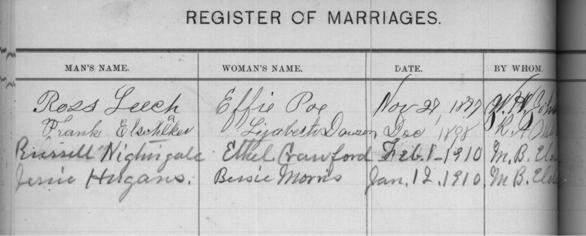 REGISTER OF MARRIAGES.
MAN'S NAME. WOMAN'S NAME. DATE. BY WHOM.
Ross Leech Effie Poe Nov 27, 1897
Frank Lizabeth Dawson Dec 1898
Russell Nightingale Ethel Crawford Feb. 1 - 1910 M. B.
Jessie Hugans. Bessie Morris Jan. 12. 1910, M B.